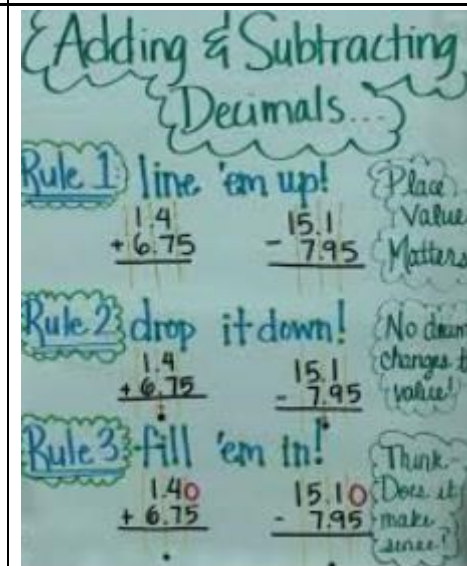 Adding & Subtracting
Decimals...
Rule 1: line 'em up!
1.4
+ 6.75
15.1
- 7.95
Place
Value
Matters
Rule 2: drop it down!
1.4
+ 6.75
.
15.1
- 7.95
.
No
changes
value!
Rule 3: fill 'em in!
1.40
+ 6.75
.
15.10
- 7.95
.
Think-
Does it
make
sense?